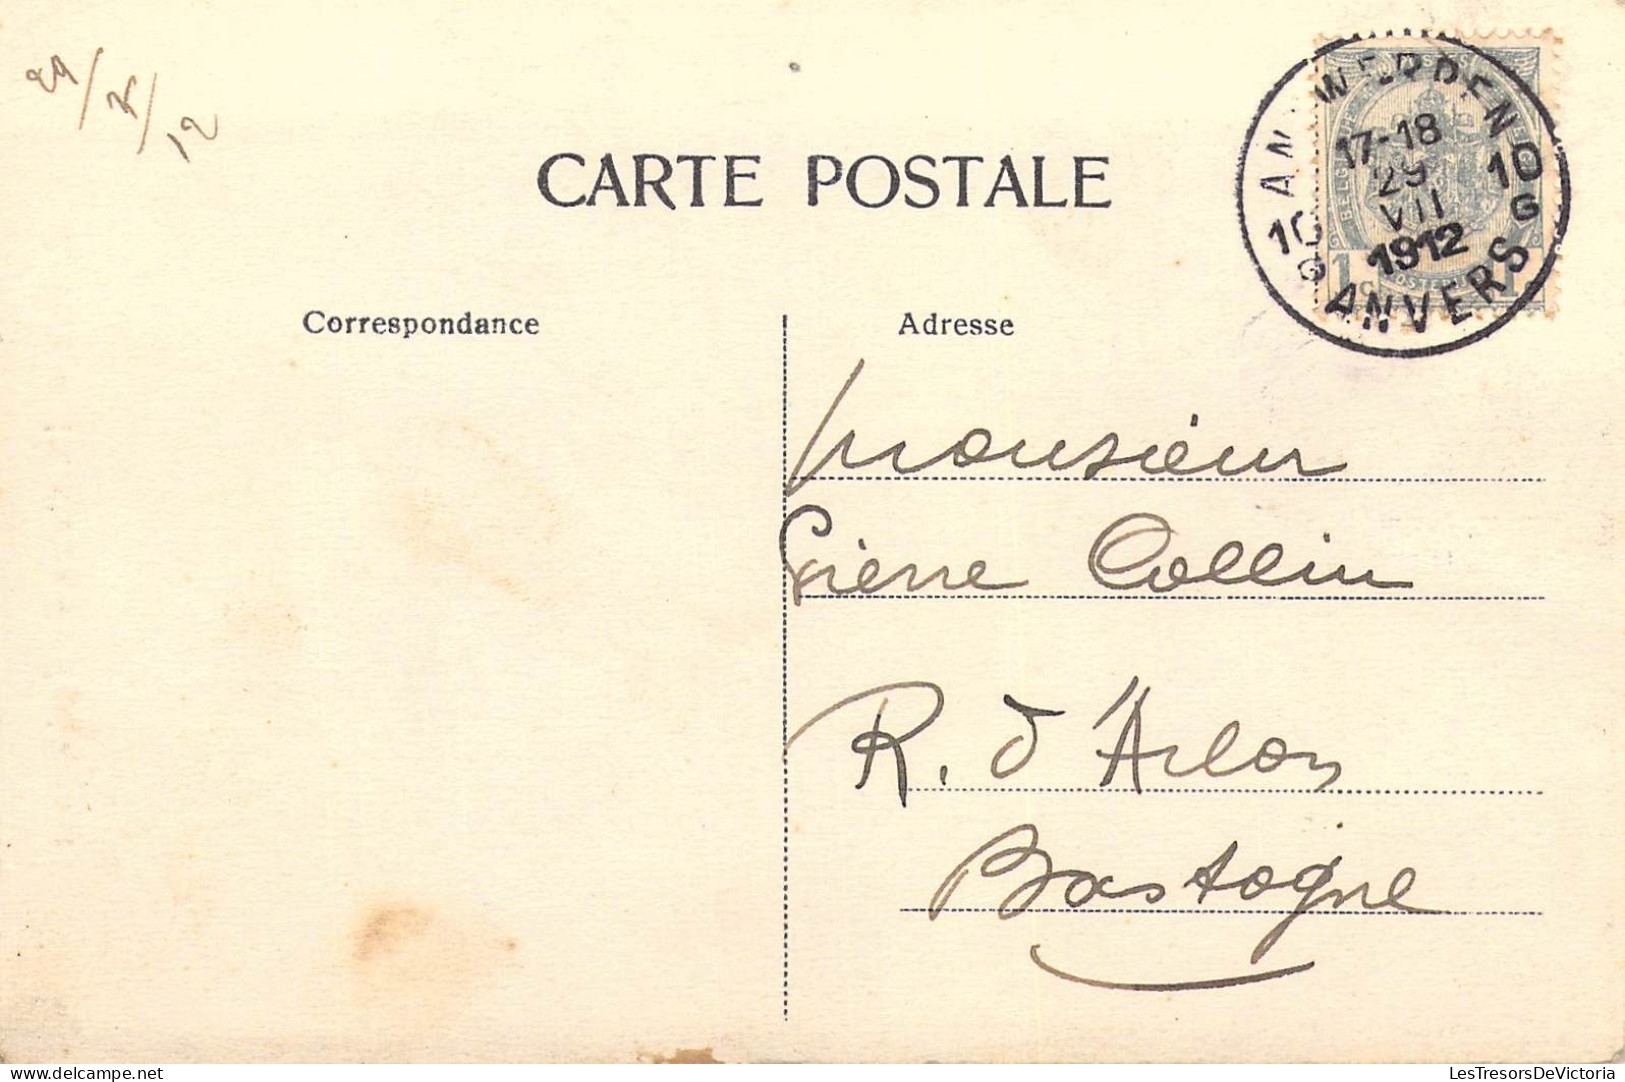 29/7/12
CARTE POSTALE
ANTWERPEN
17-18
29
VII
1912
10 G
10 G
ANVERS
1 c 1
Correspondance
Adresse
Monsieur
Pierre Collin
R. d'Arlon
Bastogne
LesTresorsDeVictoria